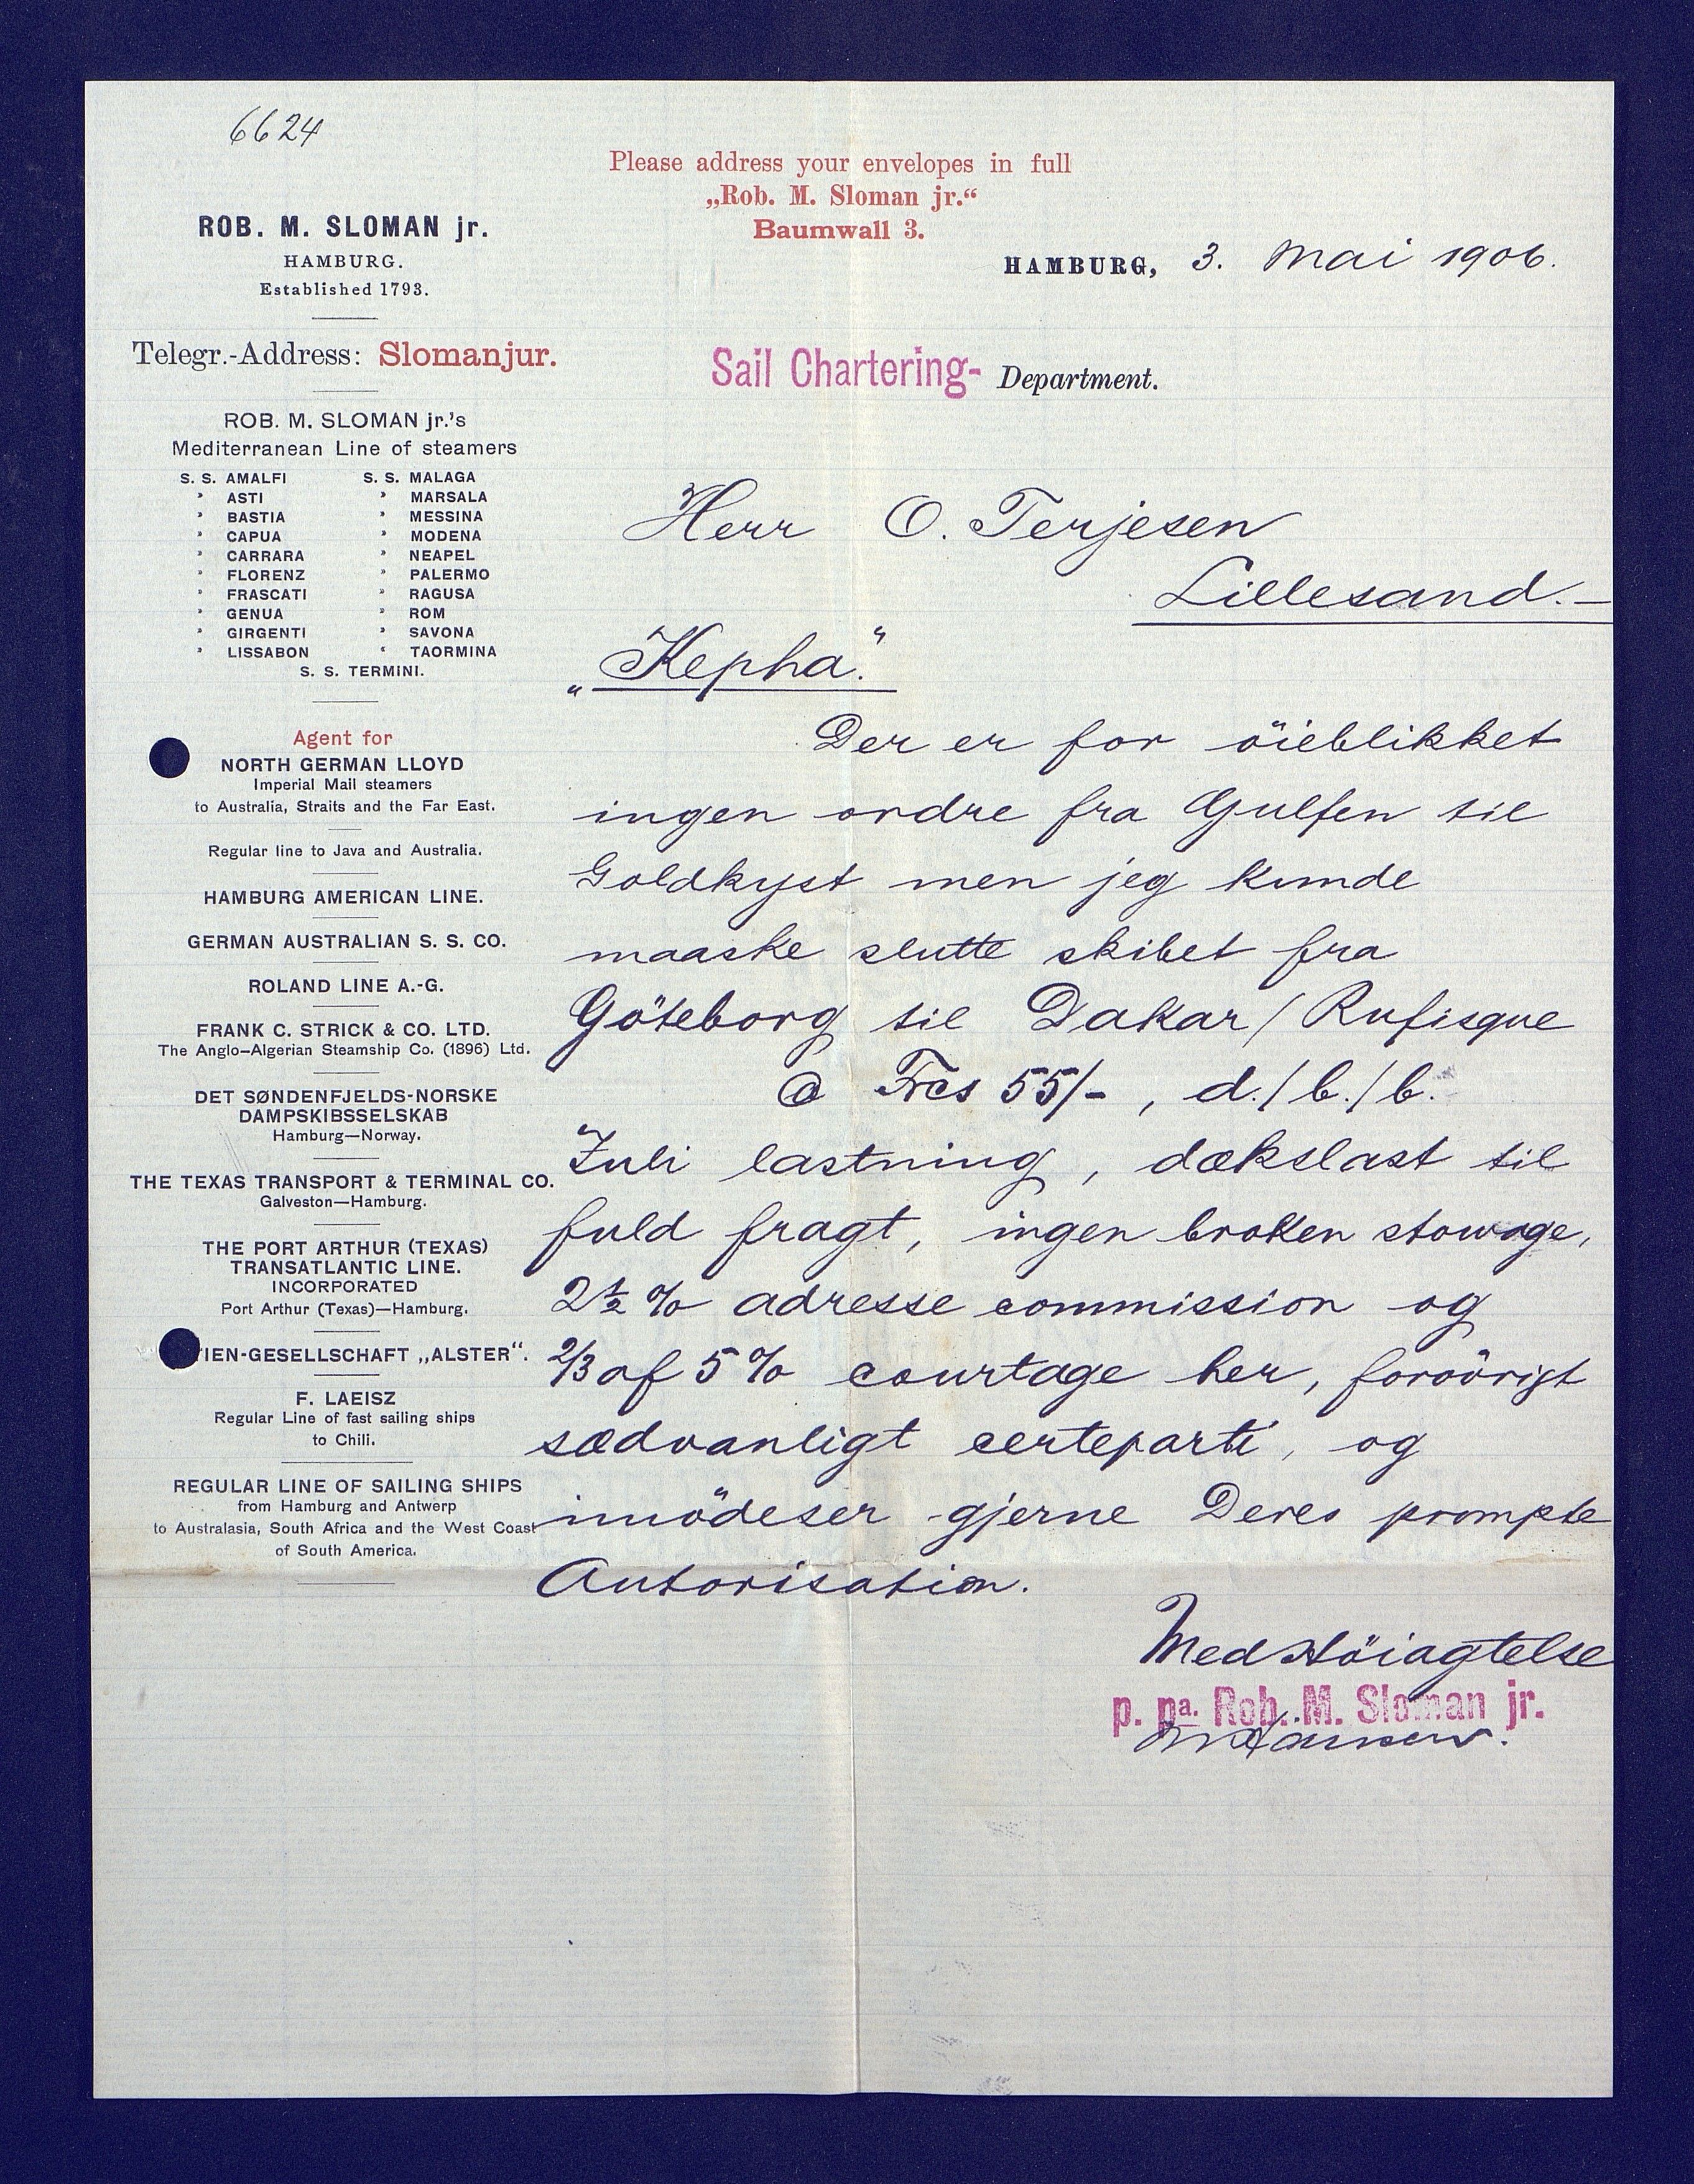 6624
Please address your envelopes in full
„Rob. M. Sloman jr.“
Baumwall 3.
ROB. M. SLOMAN jr.
HAMBURG.
Established 1793.
HAMBURG, 3. Mai 1906.
Telegr.-Address: Slomanjur.
Sail Chartering- Department.
ROB. M. SLOMAN jr.'s
Mediterranean Line of steamers
S. S. AMALFI S. S. MALAGA
" ASTI " MARSALA
" BASTIA " MESSINA
" CAPUA " MODENA
" CARRARA " NEAPEL
" FLORENZ " PALERMO
" FRASCATI " RAGUSA
" GENUA " ROM
" GIRGENTI " SAVONA
" LISSABON " TAORMINA
S. S. TERMINI.
Agent for
NORTH GERMAN LLOYD
Imperial Mail steamers
to Australia, Straits and the Far East.
Regular line to Java and Australia.
HAMBURG AMERICAN LINE.
GERMAN AUSTRALIAN S. S. CO.
ROLAND LINE A.-G.
FRANK C. STRICK & CO. LTD.
The Anglo-Algerian Steamship Co. (1896) Ltd.
DET SØNDENFJELDS-NORSKE
DAMPSKIBSSELSKAB
Hamburg—Norway.
THE TEXAS TRANSPORT & TERMINAL CO.
Galveston—Hamburg.
THE PORT ARTHUR (TEXAS)
TRANSATLANTIC LINE.
INCORPORATED
Port Arthur (Texas)—Hamburg.
TIEN-GESELLSCHAFT „ALSTER“.
F. LAEISZ
Regular Line of fast sailing ships
to Chili.
REGULAR LINE OF SAILING SHIPS
from Hamburg and Antwerp
to Australasia, South Africa and the West Coast
of South America.
Herr O. Terjesen
Lillesand.—
„Kepha."
Der er for öieblikket
ingen ordre fra Gulfen til
Goldkyst men jeg kunde
maaske slutte skibet fra
Göteborg til Dakar / Rufisque
@ Frcs 55/-, d./b./b.
Juli lastning, dækslast til
fuld fragt, ingen broken stowage,
2½ % adresse commission og
2/3 af 5 % courtage her, forövrigt
sædvanligt certeparti, og
imödeser gjerne Deres prompte
Autorisation.
Med Höiagtelse
p. pa. Rob. M. Sloman jr.